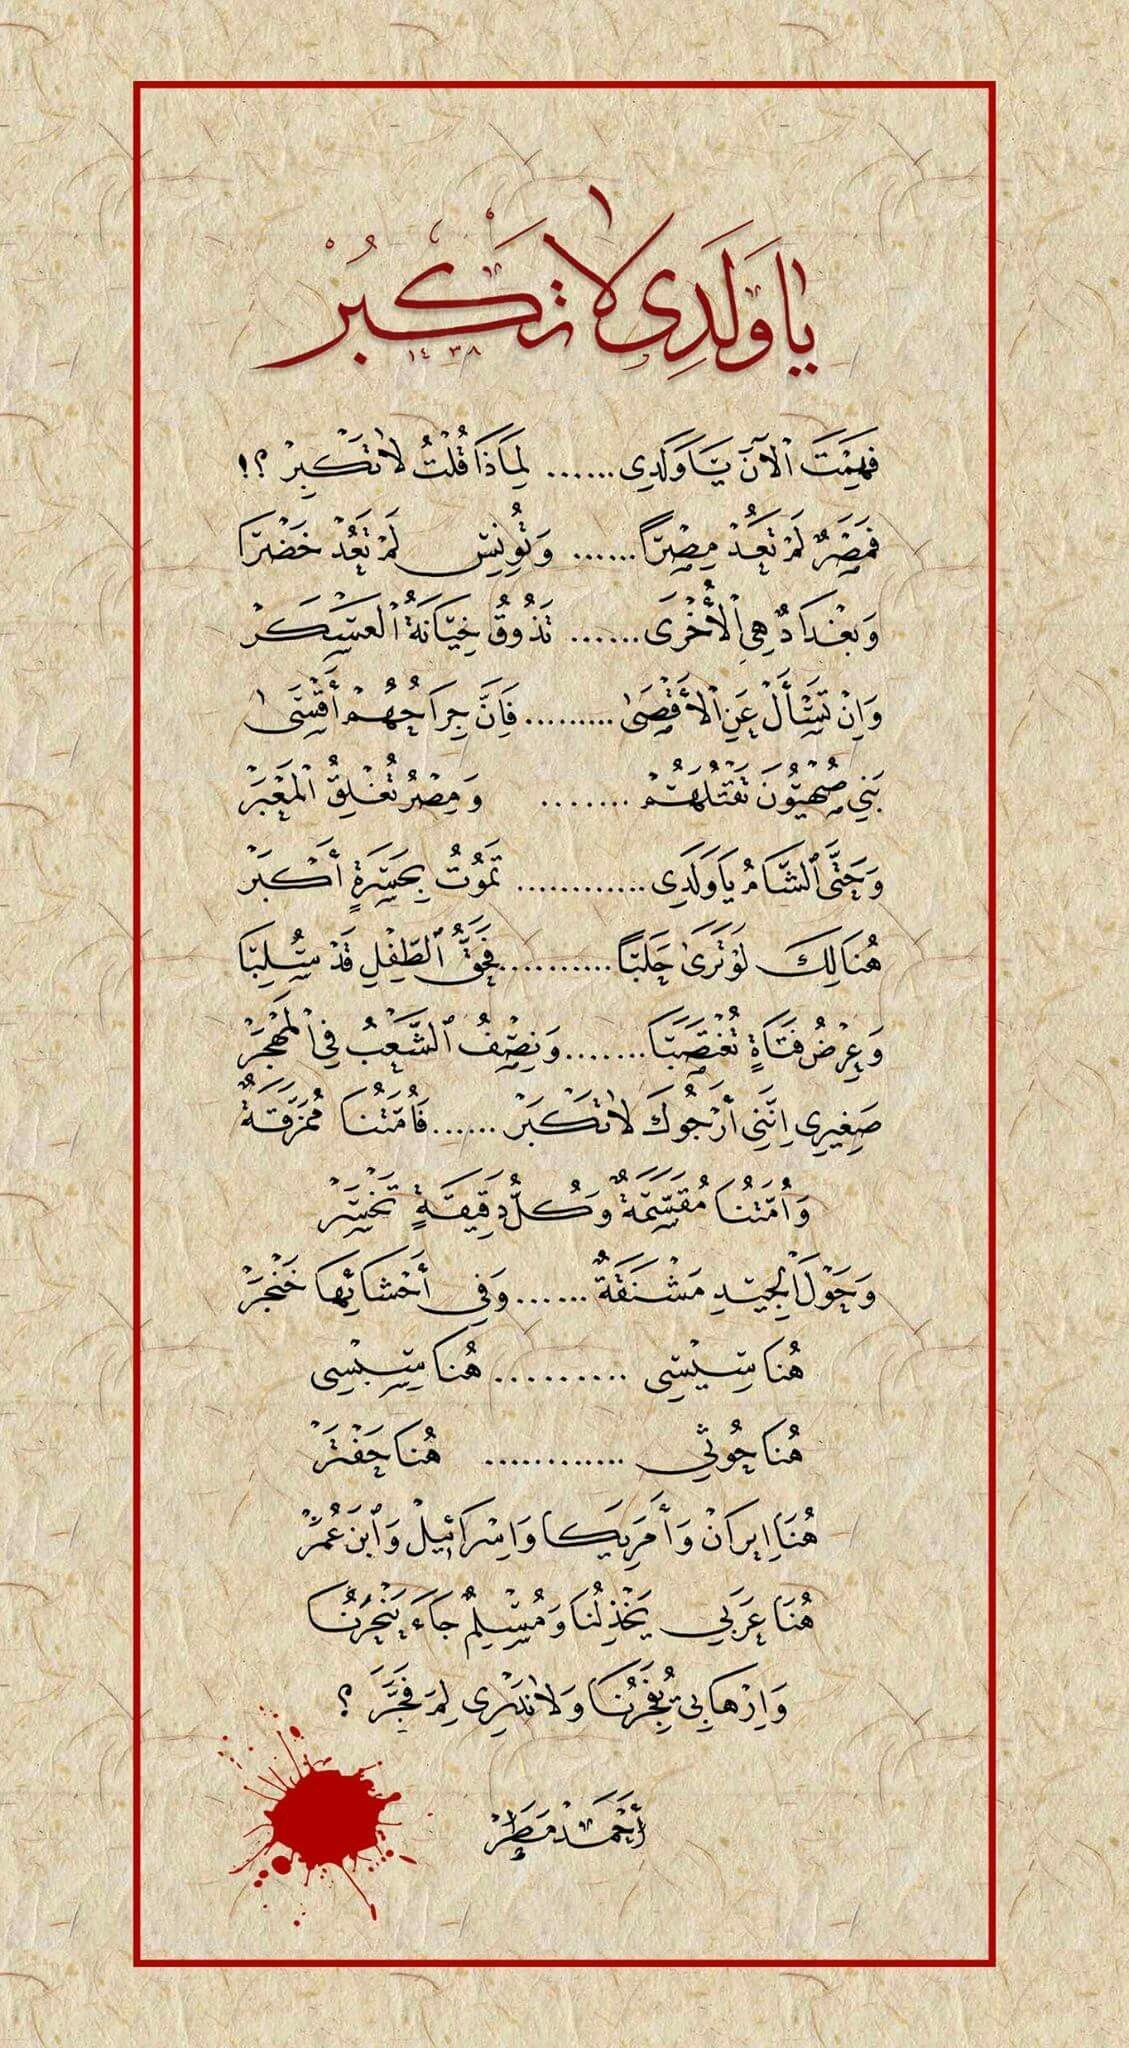 يَا وَلَدِي لَا تَكْبُرْ
١٤٣٨
فَهِمْتَ الْآنَ يَا وَلَدِي ...... لِمَاذَا قُلْتُ لَا تَكْبِرْ ؟!
فَمِصْرٌ لَمْ تَعُدْ مِصْرًا ...... وَتُونِس لَمْ تَعُدْ خَضْرَا
وَبَغْدَادٌ هِيَ الْأُخْرَى ...... تَذُوقُ خِيَانَةُ الْعَسْكَرْ
وَإِنْ تَسْأَلْ عَنِ الْأَقْصَى ......... فَإِنَّ جِرَاحُهُمْ أَقْسَى
بَنِي صُهْيُونَ تَقْتُلُهُمْ ....... وَمِصْرُ تُغْلِقُ الْمَعْبَرْ
وَحَتَّى الشَّامُ يَا وَلَدِي ............ تَمُوتُ بِحَسْرَةٍ أَكْبَرْ
هُنَالِكَ لَوْ تَرَى حَلَبًا .......... فَحَقُّ الطِّفْلِ قَدْ سُلِبَا
وَعِرْضُ فَتَاةٍ تُغْتَصَبَا ....... وَنِصْفُ الشَّعْبُ فِي الْمَهْجَرْ
صَغِيرِي إِنَّنِي أَرْجُوكَ لَا تَكْبَرْ ...... فَأُمَّتُنَا مُمَزَّقَةٌ
وَأُمَّتُنَا مُقَسَّمَةٌ وَكُلُّ دَقِيقَةٍ تَخْسَرْ
وَحَوْلَ الْجِيدِ مَشْنَقَةٌ ...... وَفِي أَحْشَائِهَا خَنْجَرْ
هُنَا سِيسِي ......... هُنَا سِبْسِي
هُنَا حُوثِي ............ هُنَا حَفْتَرْ
هُنَا إِيرَانْ وَأَمَرِيكَا وَإِسْرَائِيلْ وَابْنَ عُمَرْ
هُنَا عَرَبِي يَخْذِلُنَا وَمُسْلِمٌ جَاءَ يَنْحَرُنَا
وَإِرْهَابِي يُفَجِّرُنَا وَلَا نَدْرِي لِمَ فَجَّرَ ؟
أَحْمَدْ مَطَرْ